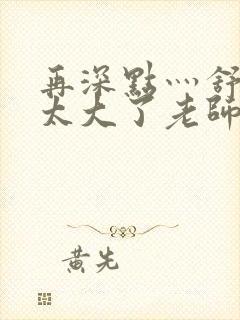 再深點灬舒
太大了老師
黃先